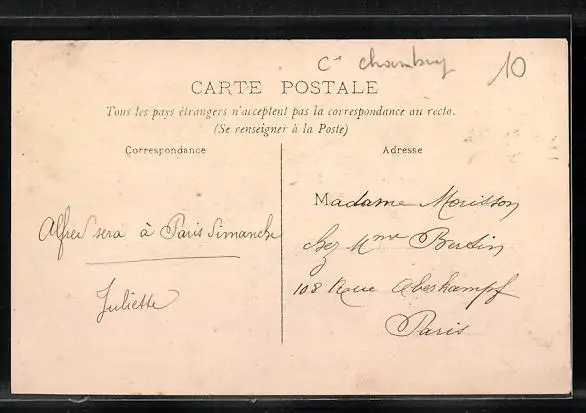 Cⁿ Chambuy
10
CARTE POSTALE
Tous les pays étrangers n'acceptent pas la correspondance au recto.
(Se renseigner à la Poste)
Correspondance
Adresse
Alfred sera à Paris Dimanche
Juliette
Madame Morisson
chez Mme Bertin
108 Rue Oberkampf
Paris